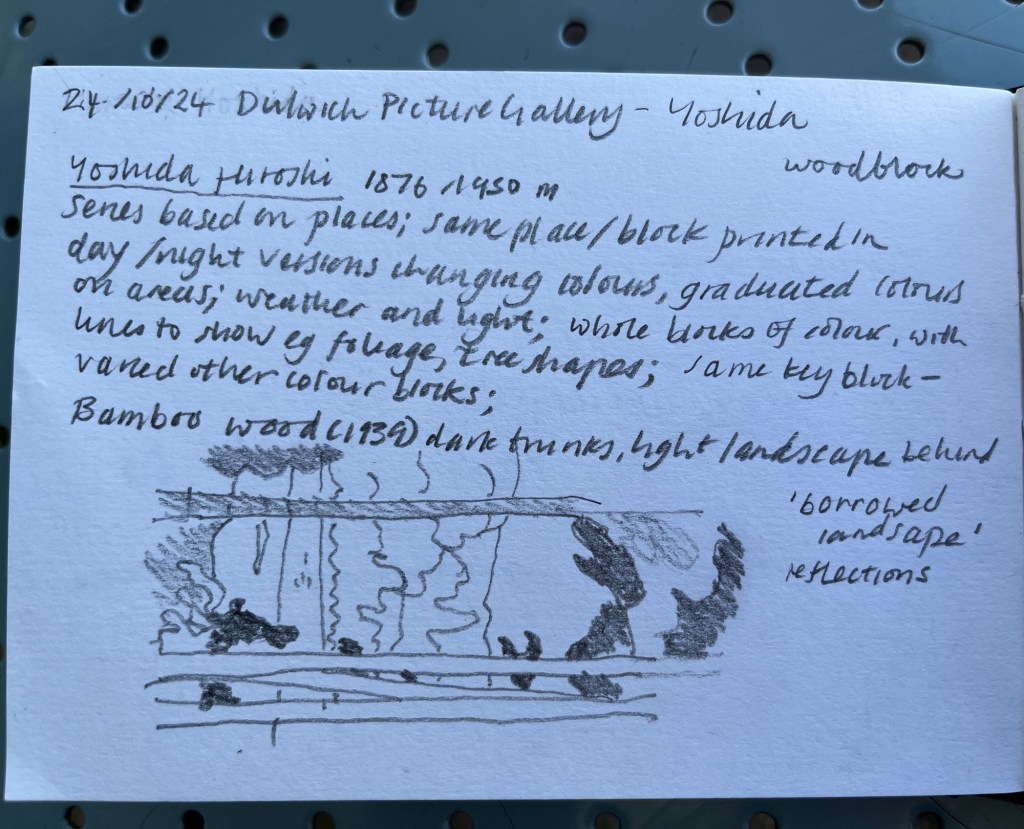 24/10/24 Dulwich Picture Gallery - Yoshida
woodblock
Yoshida Hiroshi 1876/1950 m
Series based on places; same place/block printed in
day/night versions changing colours, graduated colours
on areas; weather and light; whole blocks of colour, with
lines to show eg foliage, tree shapes; same key block -
varied other colour blocks;
Bamboo wood (1939) dark trunks, light landscape behind
'borrowed
landscape'
reflections